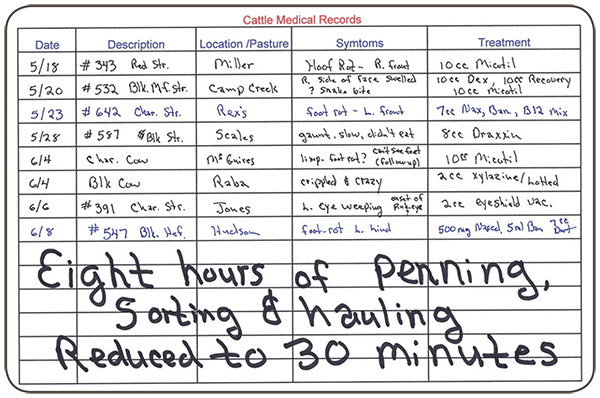 Cattle Medical Records
Date Description Location /Pasture Symtoms Treatment
5/18 #343 Red Str. Miller Hoof Rot - R. front 10cc Micotil
5/20 #532 Blk. Mf. Str. Camp Creek R. Side of face swelled ? Snake bite 10cc Dex, 10cc Recovery 10cc micotil
5/23 #642 Char. Str. Rex's foot rot - L. front 7cc Nax, Ban, B12 mix
5/28 #587 Blk Str. Scales gaunt, slow, didn't eat 8cc Draxxin
6/4 Char. Cow McGuires limp. foot rot? can't see feet (follow up) 10cc Micotil
6/4 Blk Cow Raba crippled & crazy 2cc xylazine/
6/6 #391 Char. Str. Jones L. eye weeping onset of Pink-eye 2cc eyeshield vac.
6/8 #547 Blk. Hef. Hudson foot-rot L. hind 500mg Naxcel, 5ml Ban 7cc
Eight hours of penning,
Sorting & hauling
Reduced to 30 minutes